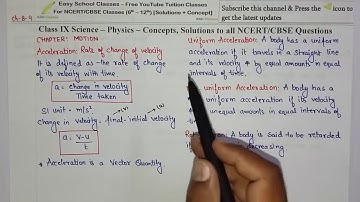 ch-8-9
Easy School Classes – Free YouTube Tuition Classes
For NCERT/CBSE Classes (6th – 12th) [Solutions + Concept]
Subscribe this channel & Press the icon to
get the latest updates
Class IX Science – Physics – Concepts, Solutions to all NCERT/CBSE Questions
CHAPTER: MOTION
Acceleration: Rate of change of velocity
It is defined as the rate of change
of its velocity with time.
a = change in velocity
Time taken
SI unit - m/s²
change in velocity = final - initial velocity
a = v-u
t
* Acceleration is a Vector Quantity
Uniform Acceleration: A body has a uniform
acceleration if it travels in a straight line
and its velocity ↑ by equal amounts in equal
intervals of time.
uniform Acceleration: A body has a
uniform acceleration if its velocity
unequal amounts in equal intervals of
A body is said to be retarded
if
decreasing